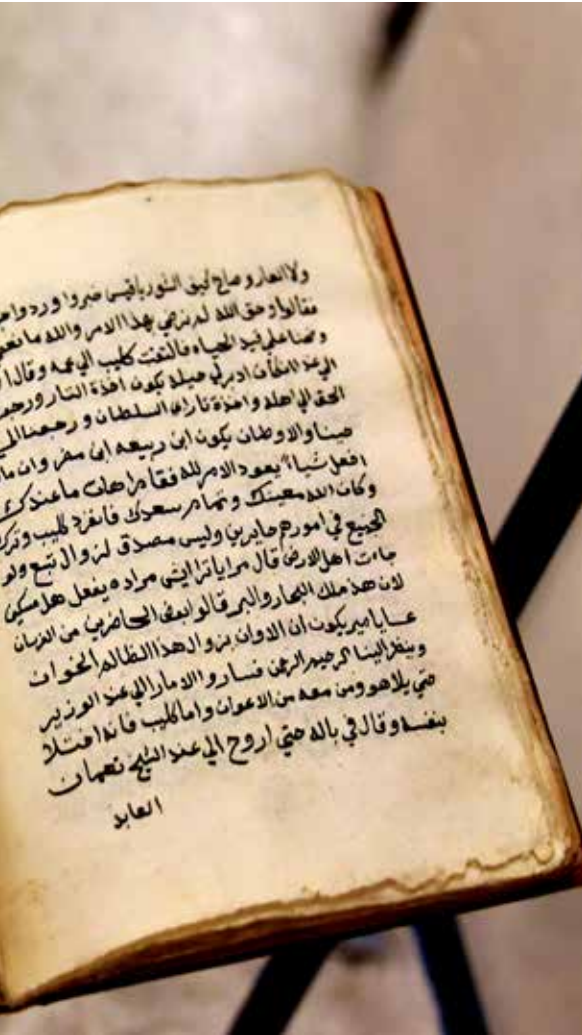 ولا العار وصاح كيف الثور يا قيس صبروا وردوا
فقالوا وحق الله لم نرضي بهذا الامر والله ما
وحنا علي قيد الحياه فالتفت كليب الي عمه وقال
الي عند ادبر لي حيله يكون اخذة التار ورجعة
الحق الي اهله واخذة تاران السلطان ورجعنا الي
حينا والاوطان يكون ابن ربيعه ابن مضر وان
افعل شياً يعود الامر لله فقام مراهات ما عندك
وكان الله معينك وتمام سعدك فانفرد كليب وترك
الجميع في امورهم حايرين وليس مصدق لزوال تبع ولو
جاءت اهل الارض قال مرا يا ترا ايش مراده يفعل هل مسكين
لان هذ ملك البحار والبر قالو بعض الحاضرين من الفرسان
عسا يا مير يكون آن الاوان بزوال هذا الظالم الخوان
وينظر الينا الرحيم الرحمن فسارو الامارا الي عند الوزير
حتي يلاهو ومن معه من الاعوان واما كليب فانه اختلا
بنفسه وقال في باله حتي اروح الي عند الشيخ نعمان
العابد